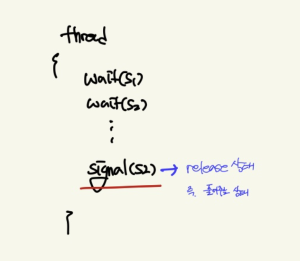 thread
{
wait(s1)
wait(s2)
⋮
signal(s2) → release 상태
즉, 풀어주는 상태
}